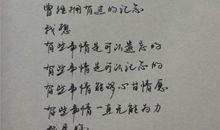 曾经拥有过的记忘
我想
有些事情是可以遗忘的
有些事情是可以记念的
有些事情能够心甘情愿
有些事情一直无能为力